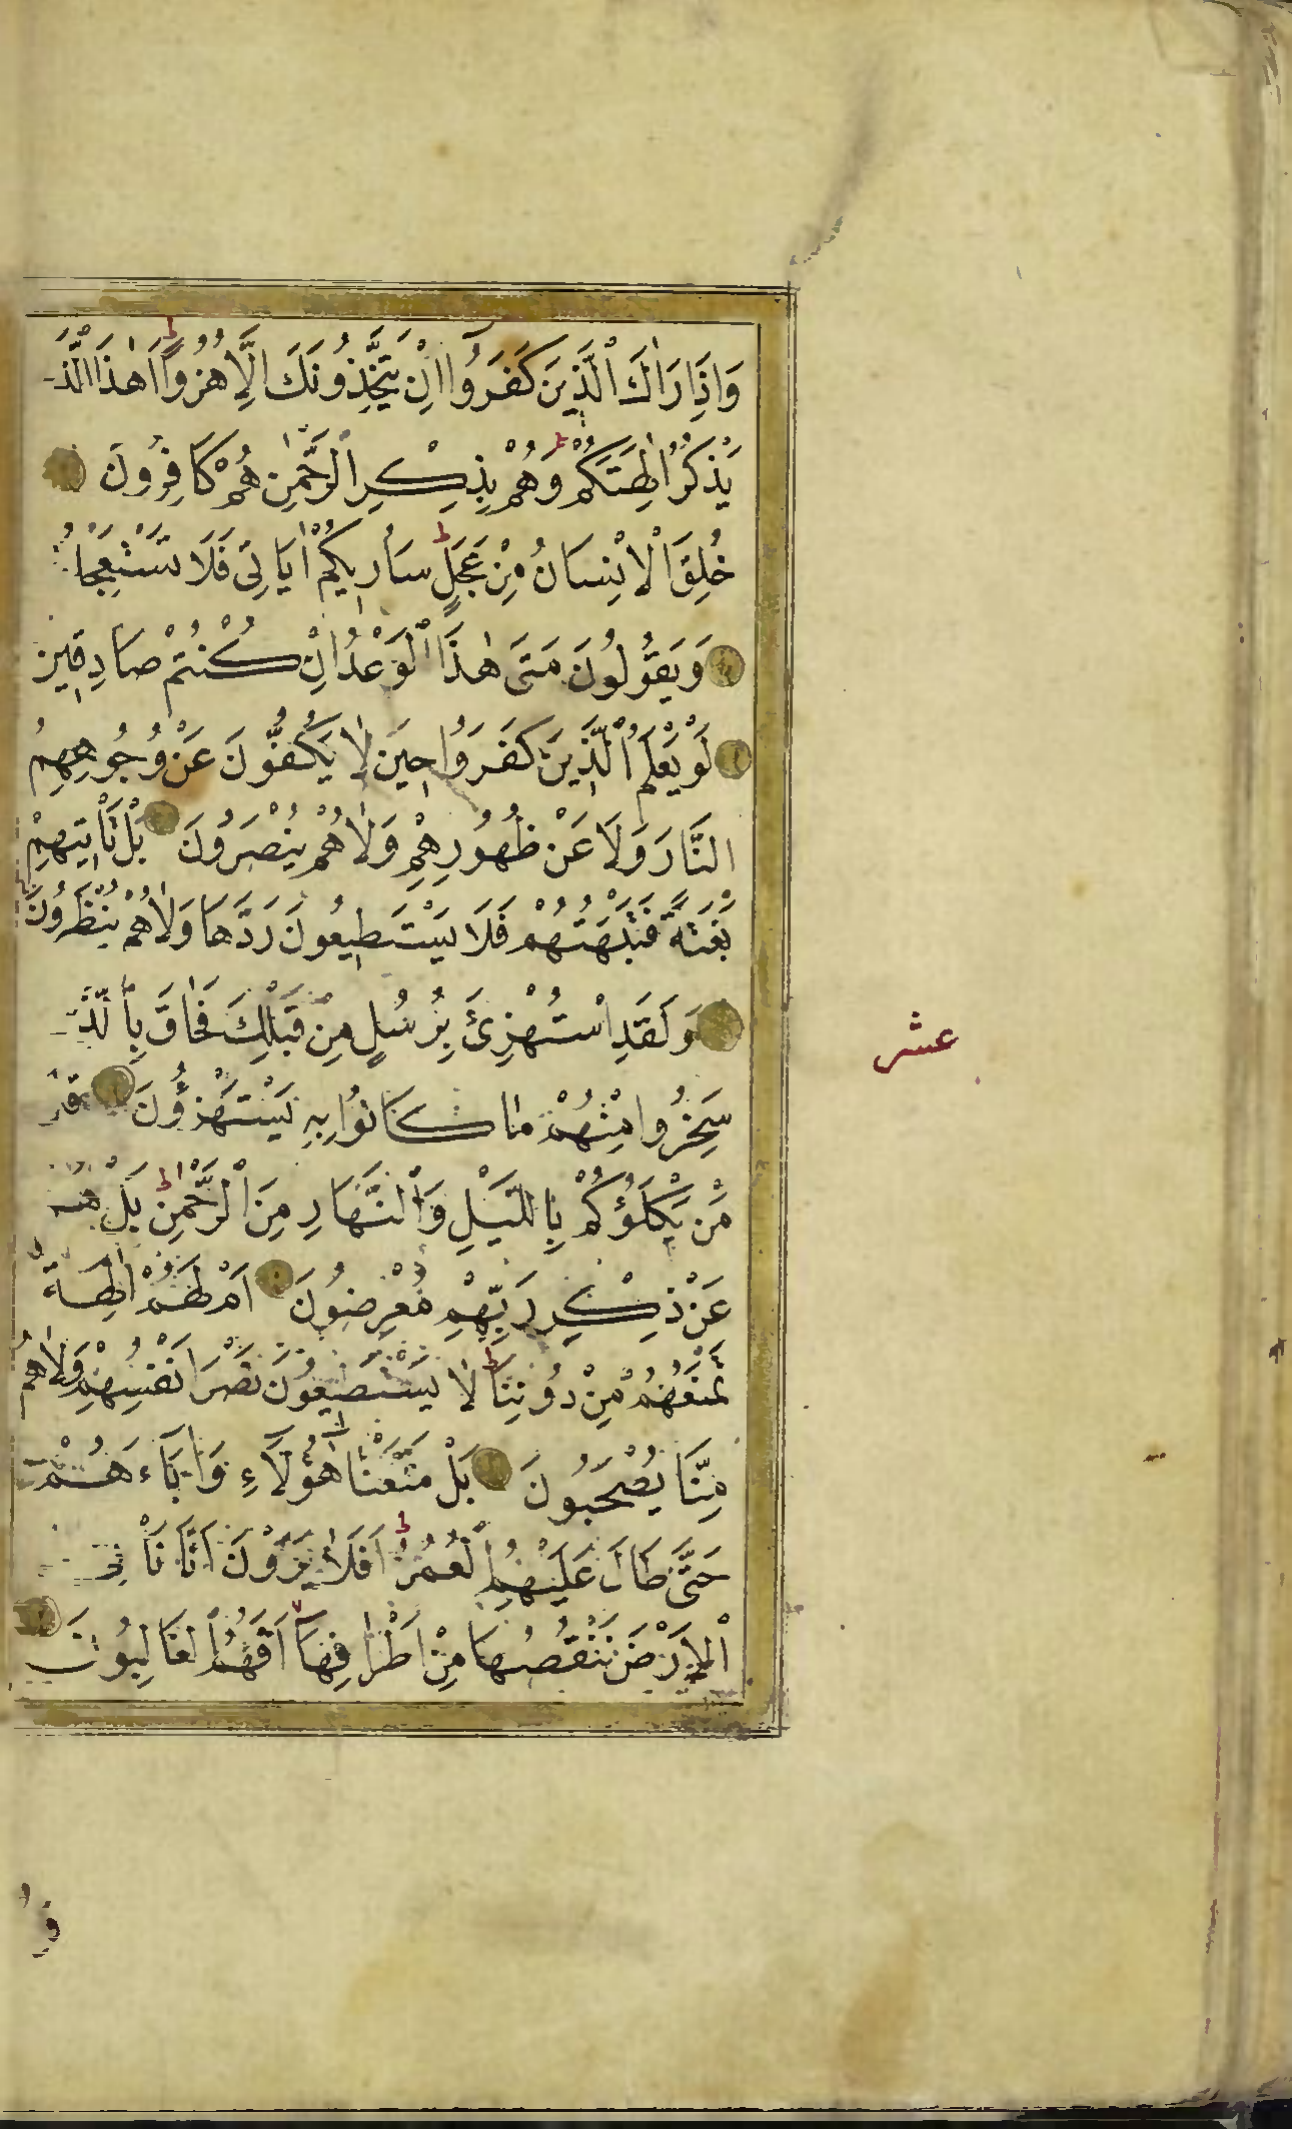 وَاِذَا رَاٰكَ الَّذِينَ كَفَرُوٓا اِنْ يَتَّخِذُونَكَ اِلَّا هُزُوًاۜ اَهٰذَا الَّذ۪ي
يَذْكُرُ اٰلِهَتَكُمْۚ وَهُمْ بِذِكْرِ الرَّحْمٰنِ هُمْ كَافِرُونَ
خُلِقَ الْاِنْسَانُ مِنْ عَجَلٍۜ سَاُر۪يكُمْ اٰيَات۪ي فَلَا تَسْتَعْجِلُونِ
وَيَقُولُونَ مَتٰى هٰذَا الْوَعْدُ اِنْ كُنْتُمْ صَادِق۪ينَ
لَوْ يَعْلَمُ الَّذ۪ينَ كَفَرُوا ح۪ينَ لَا يَكُفُّونَ عَنْ وُجُوهِهِمُ
النَّارَ وَلَا عَنْ ظُهُورِهِمْ وَلَا هُمْ يُنْصَرُونَ بَلْ تَأْت۪يهِمْ
بَغْتَةً فَتَبْهَتُهُمْ فَلَا يَسْتَط۪يعُونَ رَدَّهَا وَلَا هُمْ يُنْظَرُونَ
وَلَقَدِ اسْتُهْزِئَ بِرُسُلٍ مِنْ قَبْلِكَ فَحَاقَ بِالَّذ۪ينَ
سَخِرُوا مِنْهُمْ مَا كَانُوا بِه۪ يَسْتَهْزِؤُنَ قُلْ
مَنْ يَكْلَؤُكُمْ بِالَّيْلِ وَالنَّهَارِ مِنَ الرَّحْمٰنِۜ بَلْ هُمْ
عَنْ ذِكْرِ رَبِّهِمْ مُعْرِضُونَ اَمْ لَهُمْ اٰلِهَةٌ
تَمْنَعُهُمْ مِنْ دُونِنَاۜ لَا يَسْتَط۪يعُونَ نَصْرَ اَنْفُسِهِمْ وَلَا هُمْ
مِنَّا يُصْحَبُونَ بَلْ مَتَّعْنَا هٰٓؤُلَٓاءِ وَاٰبَٓاءَهُمْ
حَتّٰى طَالَ عَلَيْهِمُ الْعُمُرُۜ اَفَلَا يَرَوْنَ اَنَّا نَأْتِي
الْاَرْضَ نَنْقُصُهَا مِنْ اَطْرَافِهَاۜ اَفَهُمُ الْغَالِبُونَ
عشر